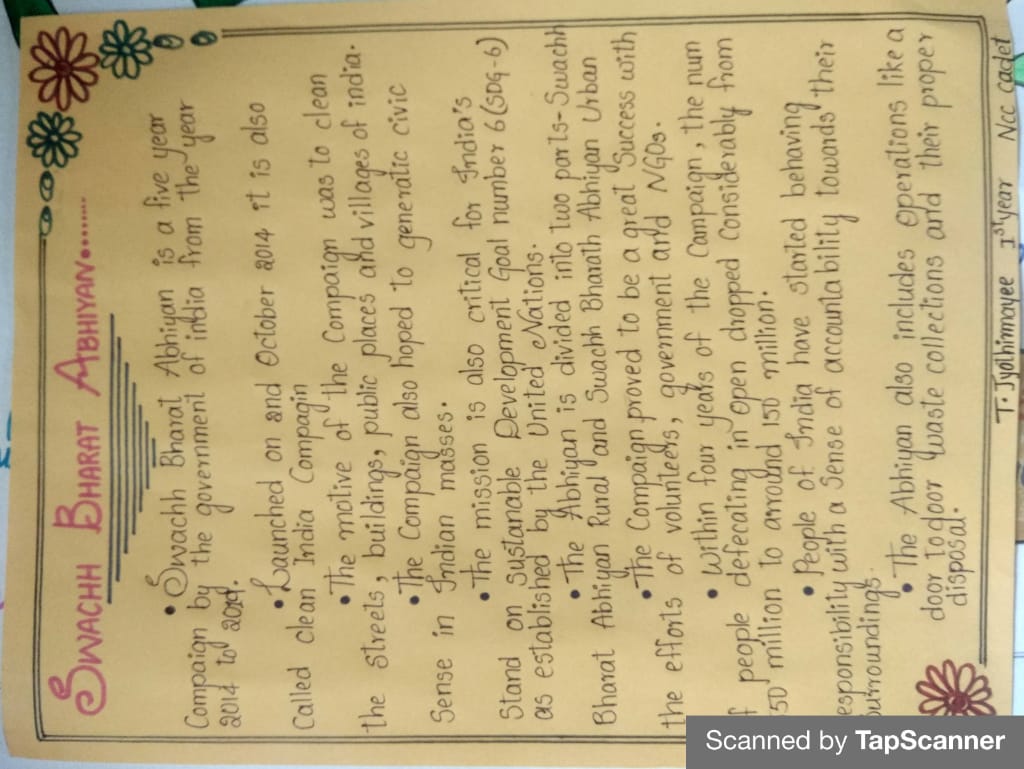 SWACHH BHARAT ABHIYAN.......
• Swachh Bharat Abhiyan is a five year
Compaign by the government of india from the year
2014 to 2019.
• Launched on 2nd October 2014 it is also
Called clean India Compagin
• The motive of the Compaign was to clean
the streets, buildings, public places and villages of india.
• The Compaign also hoped to generatic civic
Sense in Indian masses.
• The mission is also critical for India's
Stand on Sustanable Development Goal number 6 (SDG-6)
as established by the United Nations.
• The Abhiyan is divided into two parts- Swachh
Bharat Abhiyan Rural and Swachh Bharath Abhiyan Urban
• The Compaign proved to be a great Success with
the efforts of volunteers, government and NGOs.
• Within four years of the Campaign, the num
f people defecating in Open dropped Considerably from
50 million to around 150 million.
• People of India have started behaving
esponsibility with a Sense of accountability towards their
surroundings.
• The Abhiyan also includes Operations like a
door to door waste collections and their proper
disposal.
T. Jyothirmayee 1st year NCC cadet
Scanned by TapScanner